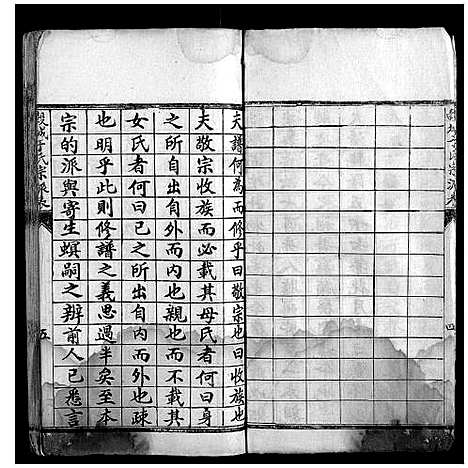 夫譜何為而修乎曰敬宗也曰收族也
夫敬宗收族而必載其母氏者何曰身
之所自出自外而內也親也而不載其
女氏者何曰己之所出自內而外也疎
也明乎此則修譜之義思過半矣至本
宗的派與寄生螟嗣之辨前人已悉言
氏宗派
五
四